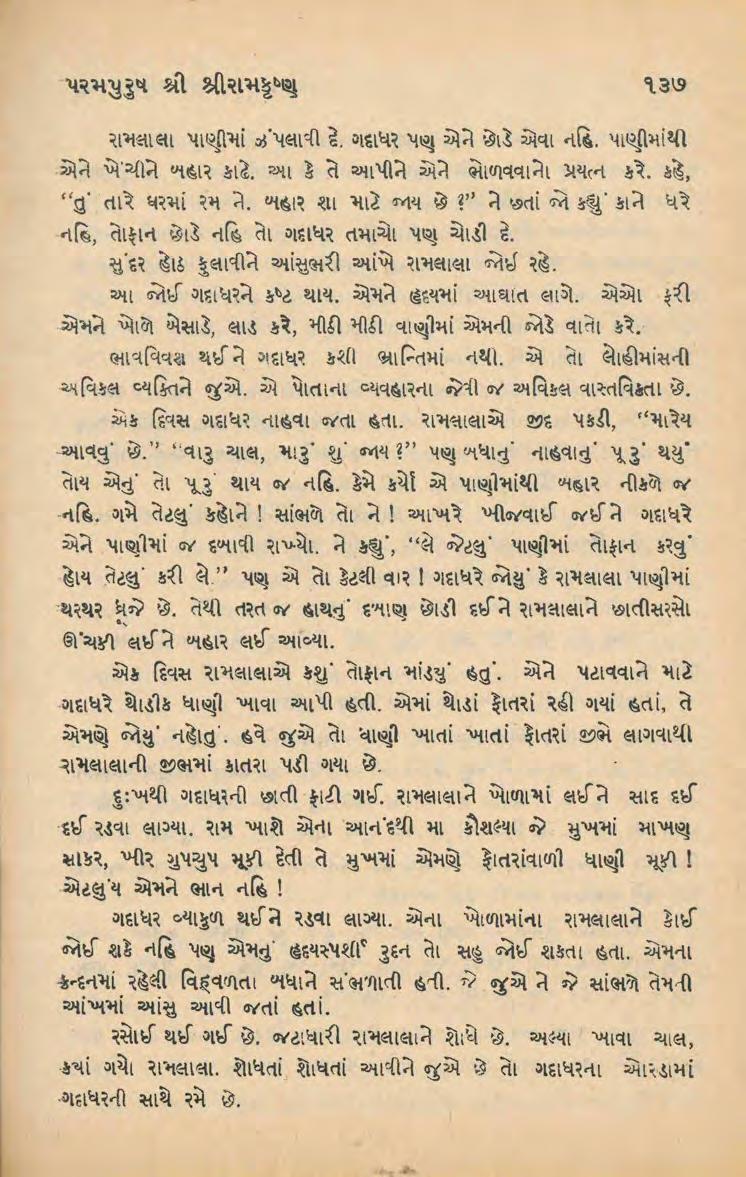 પરમપુરુષ શ્રી શ્રીરામકૃષ્ણ ૧૩૭
રામલાલા પાણીમાં ઝંપલાવી દે. ગદાધર પણ એને છોડે એવા નહિ. પાણીમાંથી
એને ખેંચીને બહાર કાઢે. આ કે તે આપીને એને ભોળવવાનો પ્રયત્ન કરે. કહે,
“તું તારે ઘરમાં રમ ને. બહાર શા માટે જાય છે ?” ને છતાં જો કહ્યું કાને ધરે
નહિ, તોફાન છોડે નહિ તો ગદાધર તમાચો પણ ચોડી દે.
સુંદર હોઠ ફુલાવીને આંસુભરી આંખે રામલાલા જોઈ રહે.
આ જોઈ ગદાધરને કષ્ટ થાય. એમને હૃદયમાં આઘાત લાગે. એઓ ફરી
એમને ખોળે બેસાડે, લાડ કરે, મીઠી મીઠી વાણીમાં એમની જોડે વાતો કરે.
ભાવવિવશ થઈને ગદાધર કશી ભ્રાન્તિમાં નથી. એ તો લોહીમાંસની
અવિકલ વ્યક્તિને જુએ. એ પોતાના વ્યવહારના જેવી જ અવિકલ વાસ્તવિકતા છે.
એક દિવસ ગદાધર નાહવા જતા હતા. રામલાલાએ જીદ પકડી, “મારેય
આવવું છે.” “વારુ ચાલ, મારું શું જાય ?” પણ બધાનું નાહવાનું પૂરું થયું
તોય એનું તો પૂરું થાય જ નહિ. કેમે કર્યો એ પાણીમાંથી બહાર નીકળે જ
નહિ. ગમે તેટલું કહોને ! સાંભળે તો ને ! આખરે ખીજવાઈ જઈને ગદાધરે
એને પાણીમાં જ દબાવી રાખ્યો. ને કહ્યું, “લે જેટલું પાણીમાં તોફાન કરવું
હોય તેટલું કરી લે.” પણ એ તો કેટલી વાર ! ગદાધરે જોયું કે રામલાલા પાણીમાં
થરથર ધ્રૂજે છે. તેથી તરત જ હાથનું દબાણ છોડી દઈને રામલાલાને છાતીસરસો
ઊંચકી લઈને બહાર લઈ આવ્યા.
એક દિવસ રામલાલાએ કશું તોફાન માંડયું હતું. એને પટાવવાને માટે
ગદાધરે થોડીક ધાણી ખાવા આપી હતી. એમાં થોડાં ફોતરાં રહી ગયાં હતાં, તે
એમણે જોયું નહોતું. હવે જુએ તો ધાણી ખાતાં ખાતાં ફોતરાં જીભે લાગવાથી
રામલાલાની જીભમાં કાતરા પડી ગયા છે.
દુઃખથી ગદાધરની છાતી ફાટી ગઈ. રામલાલાને ખોળામાં લઈને સાદ દઈ
દઈ રડવા લાગ્યા. રામ ખાશે એના આનંદથી મા કૌશલ્યા જે મુખમાં માખણ
સાકર, ખીર ગુપચુપ મૂકી દેતી તે મુખમાં એમણે ફોતરાંવાળી ધાણી મૂકી !
એટલુંય એમને ભાન નહિ !
ગદાધર વ્યાકુળ થઈને રડવા લાગ્યા. એના ખોળામાંના રામલાલાને કોઈ
જોઈ શકે નહિ પણ એમનું હૃદયસ્પર્શી રુદન તો સહુ જોઈ શકતા હતા. એમના
ક્રન્દનમાં રહેલી વિહ્વળતા બધાને સંભળાતી હતી. જે જુએ ને જે સાંભળે તેમની
આંખમાં આંસુ આવી જતાં હતાં.
રસોઈ થઈ ગઈ છે. જટાધારી રામલાલાને શોધે છે. અલ્યા ખાવા ચાલ,
કયાં ગયો રામલાલા. શોધતાં શોધતાં આવીને જુએ છે તો ગદાધરના ઓરડામાં
ગદાધરની સાથે રમે છે.